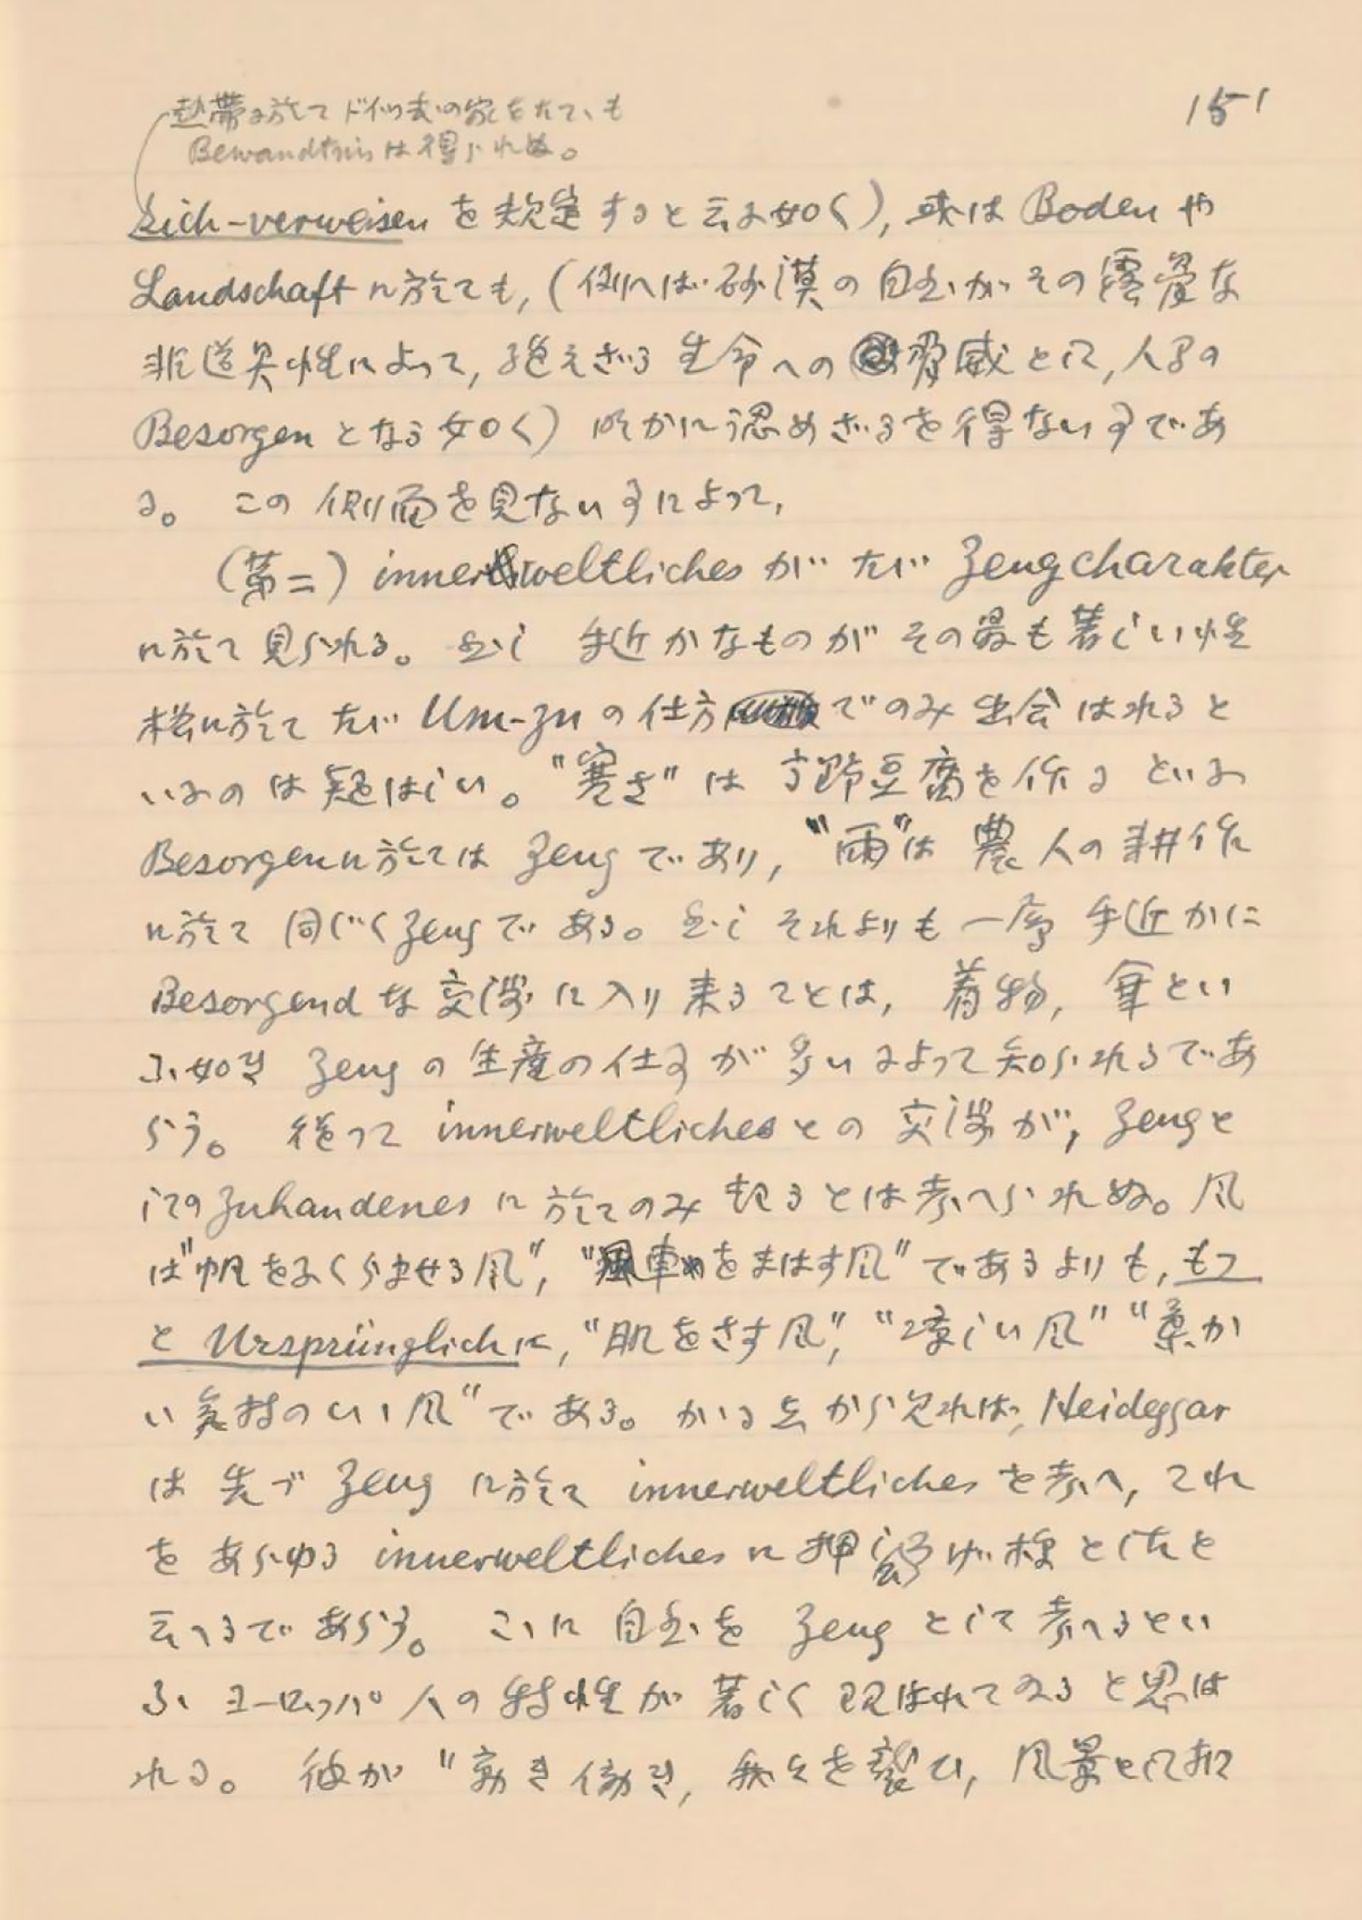 151
熱帯に於てドイツ式の家をたてゝも
Bewandtnisは得られぬ。
Sich-verweisenを規定すると云ふ如く), 或はBodenや
Landschaftに於ても, (例へば砂漠の自然がその露骨な
非道具性によって, 絶えざる生命への脅威として, 人間の
Besorgenとなる如く) 明かに認めざるを得ない事であ
る。この側面を見ない事によって,
(第二) innerweltlichesがたゞZeugcharakter
に於て見られる。然し 手近かなものがその最も著しい性
格に於てたゞUm-zuの仕方でのみ出会はれると
いふのは疑はしい。"寒さ"は高野豆腐を作るといふ
Besorgenに於てはZeugであり, "雨"は農人の耕作
に於て同じくZeugである。然しそれよりも一層手近かに
Besorgendな交渉に入り来ることは, 着物, 傘とい
ふ如きZeugの生産の仕事が多いによって知られるであ
らう。従ってinnerweltlichesとの交渉が, Zeugと
してのZuhandenesに於てのみ起るとは考へられぬ。風
は"帆をふくらませる風", "風車をまはす風"であるよりも, もつ
とUrsprünglichに, "肌をさす風", "涼しい風" "柔か
い気持のいい風"である。かゝる点から見れば, Heideggar
は先づZeugに於てinnerweltlichesを考へ, これ
をあらゆるinnerweltlichesに押し拡げ様としたと
云へるであらう。こゝに自然をZeugとして考へるとい
ふヨーロッパ人の特性が著しく現はれてゐると思は
れる。彼が"動き働き, 我々を襲ひ, 風景として我